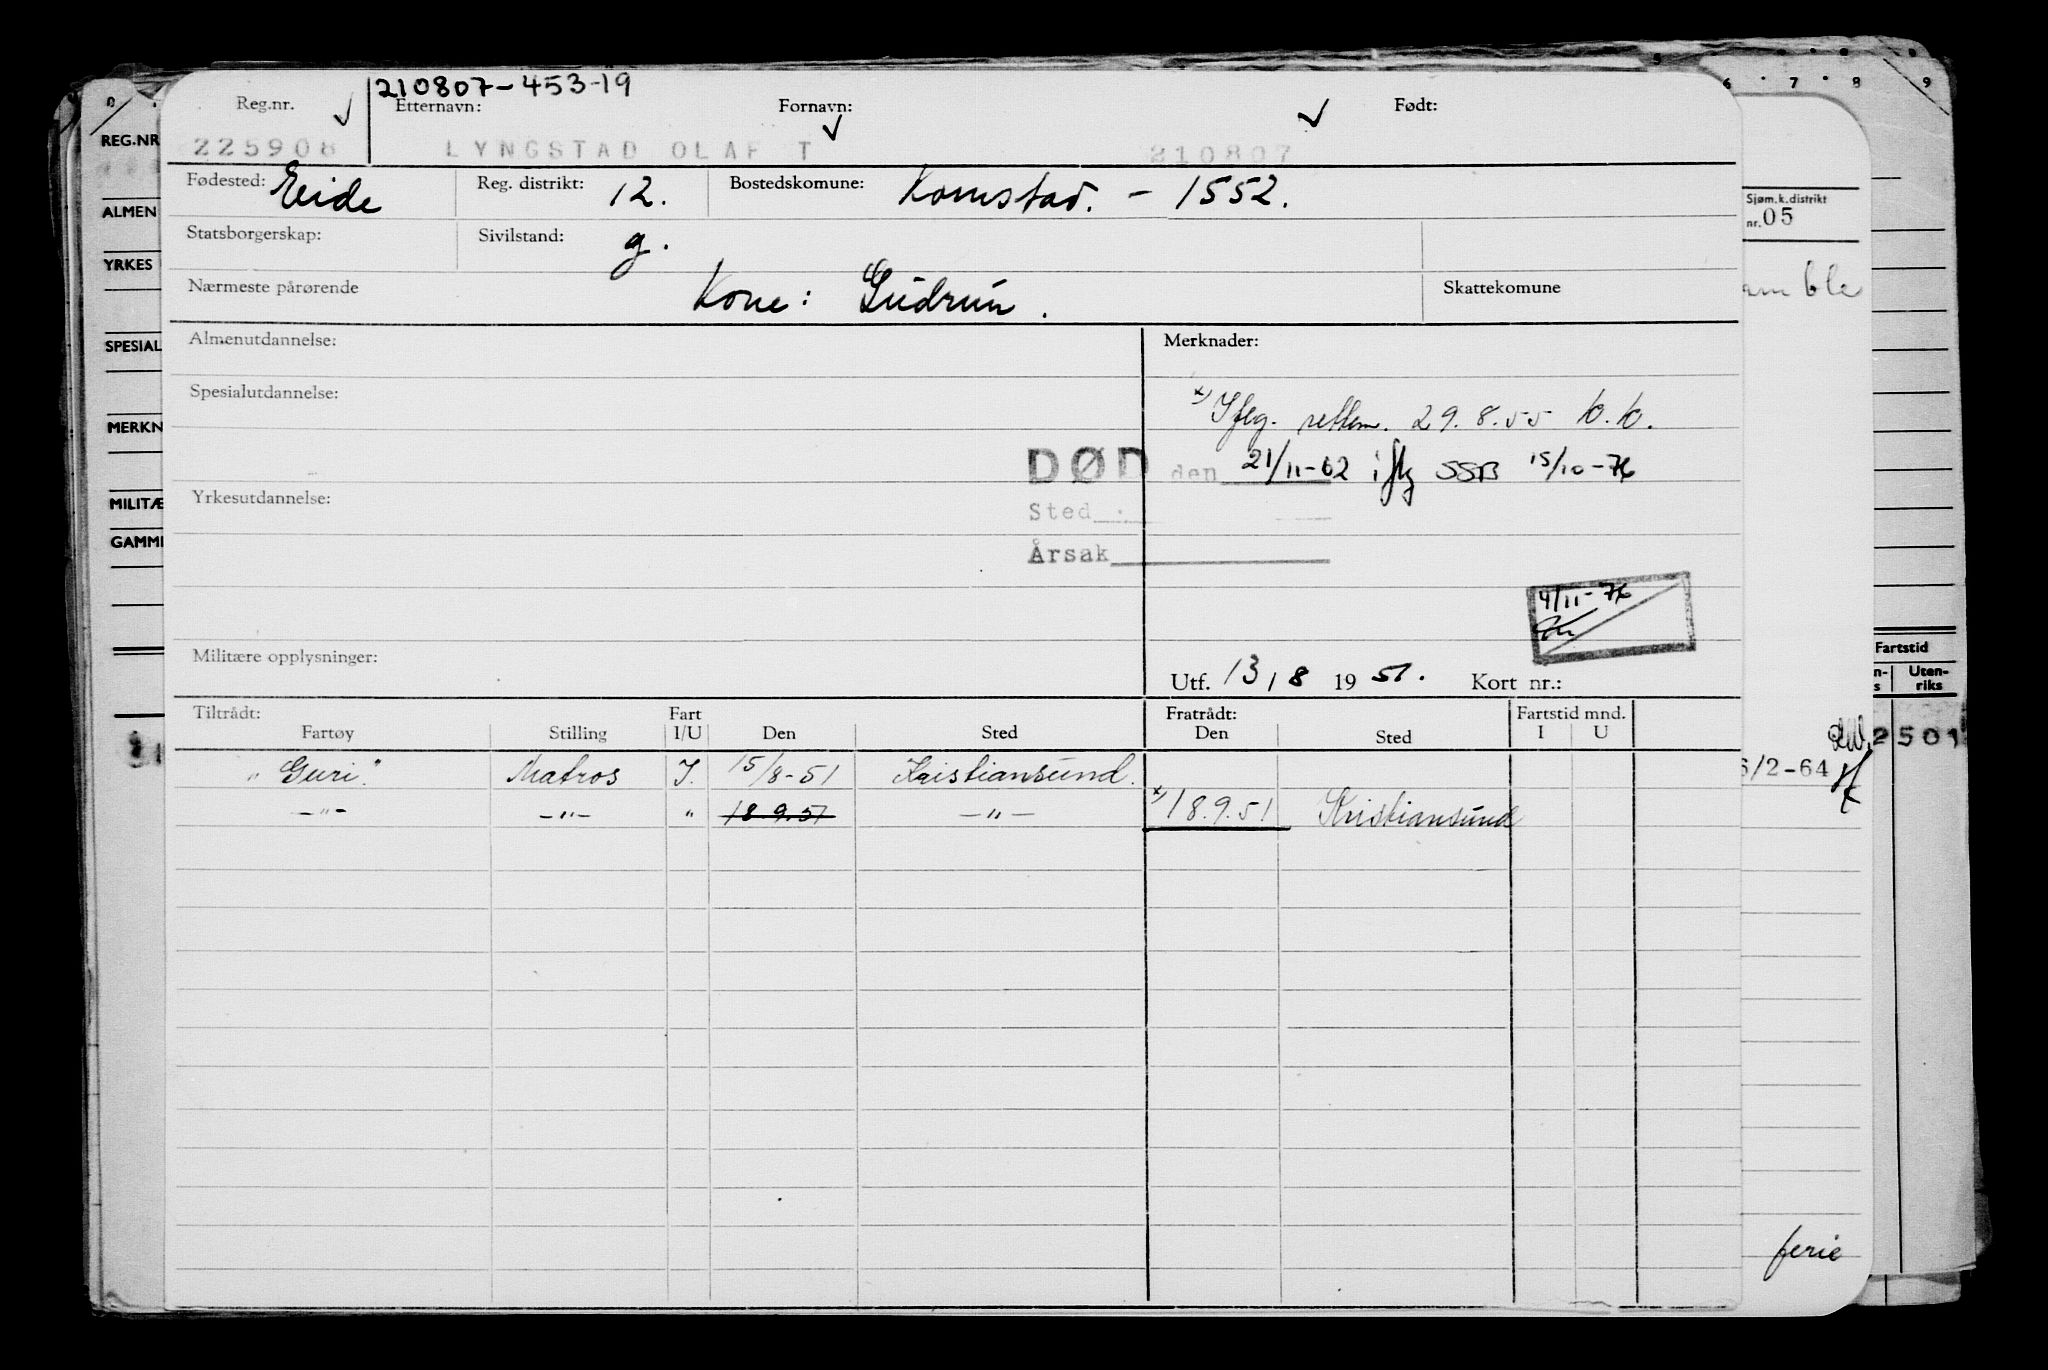 210807-453-19
Reg.nr. Etternavn: Fornavn: Født:
225908 LYNGSTAD OLAF T 210807
Fødested: Eide Reg. distrikt: 12. Bostedskomune: Kornstad. - 1552.
Statsborgerskap: Sivilstand: g.
Nærmeste pårørende Kone: Gudrun. Skattekomune
Almenutdannelse: Merknader:
Spesialutdannelse: x) Ifløg. rettem. 29.8.55 K.K.
DØD den 21/11-62 iflg SSB 15/10-76
Yrkesutdannelse:
Sted
Årsak
4/11-76
Militære opplysninger:
Utf. 13/8 1951. Kort nr.:
Tiltrådt: Fart Fratrådt: Fartstid mnd.
Fartøy Stilling I/U Den Sted Den Sted I U
"Guri" Matros I. 15/8-51 Kristiansund.
-"- -"- " 18.9.51 -"- x) 18.9.51 Kristiansund
REG.NR
ALMEN
YRKES
SPESIAL
MERKN
MILITÆ
GAMM
6 7 8 9
Sjøm.k.distrikt
nr. 05
amble
Fartstid
Uten-
riks
2501
6/2-64
ferie